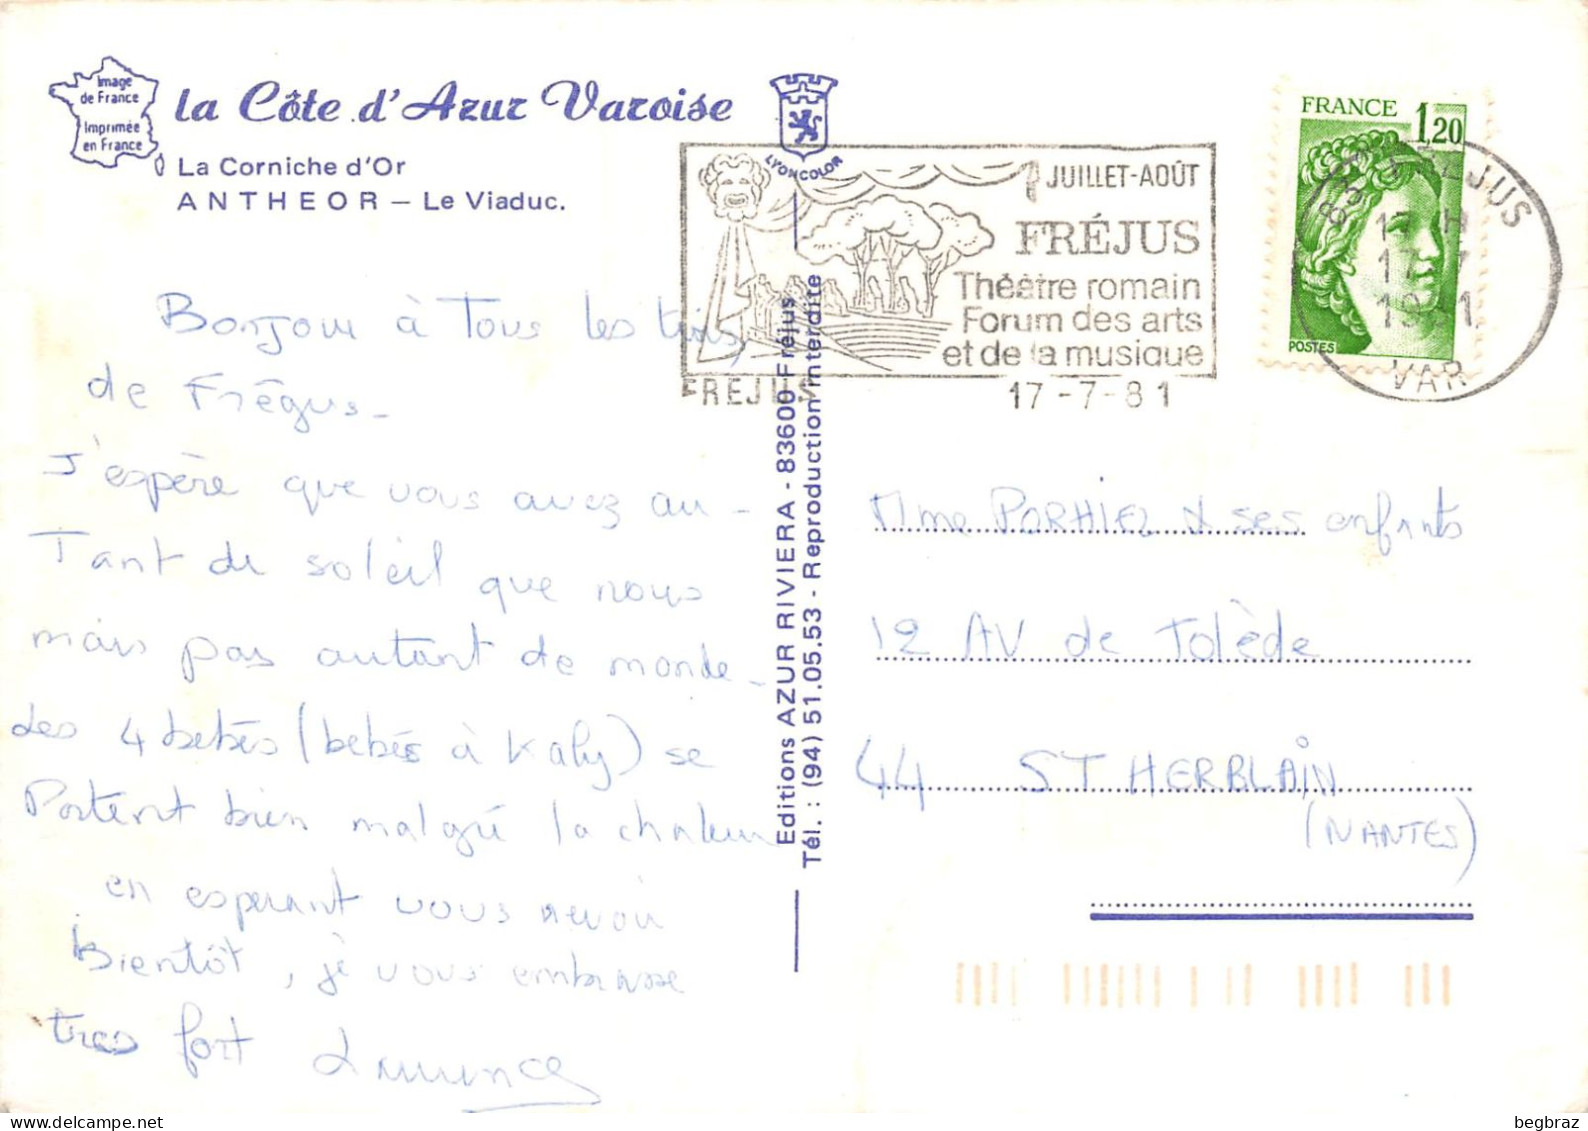 Image
de France
Imprimée
en France
la Côte d'Azur Varoise
La Corniche d'Or
ANTHEOR — Le Viaduc.
LYONCOLOR
JUILLET-AOÛT
FRÉJUS
Théâtre romain
Forum des arts
et de la musique
FREJUS 17-7-81
FRANCE 1,20
POSTES
83 FREJUS
17 H
17-7
1981
VAR
Bonjour à Tous les trois,
de Frégus-
J'espère que vous avez au-
Tant de soleil que nous
mais pas autant de monde-
Les 4 bébés (bébés à Kaly) se
Portent bien malgré la chaleur
en esperant vous revoir
Bientôt, je vous embrasse
tres fort Laurence
Editions AZUR RIVIERA - 83600 Fréjus
Tél. : (94) 51.05.53 - Reproduction interdite
Mme PORHIEL & ses enfants
12 AV de Tolède
44 ST HERBLAIN
(NANTES)
begbraz